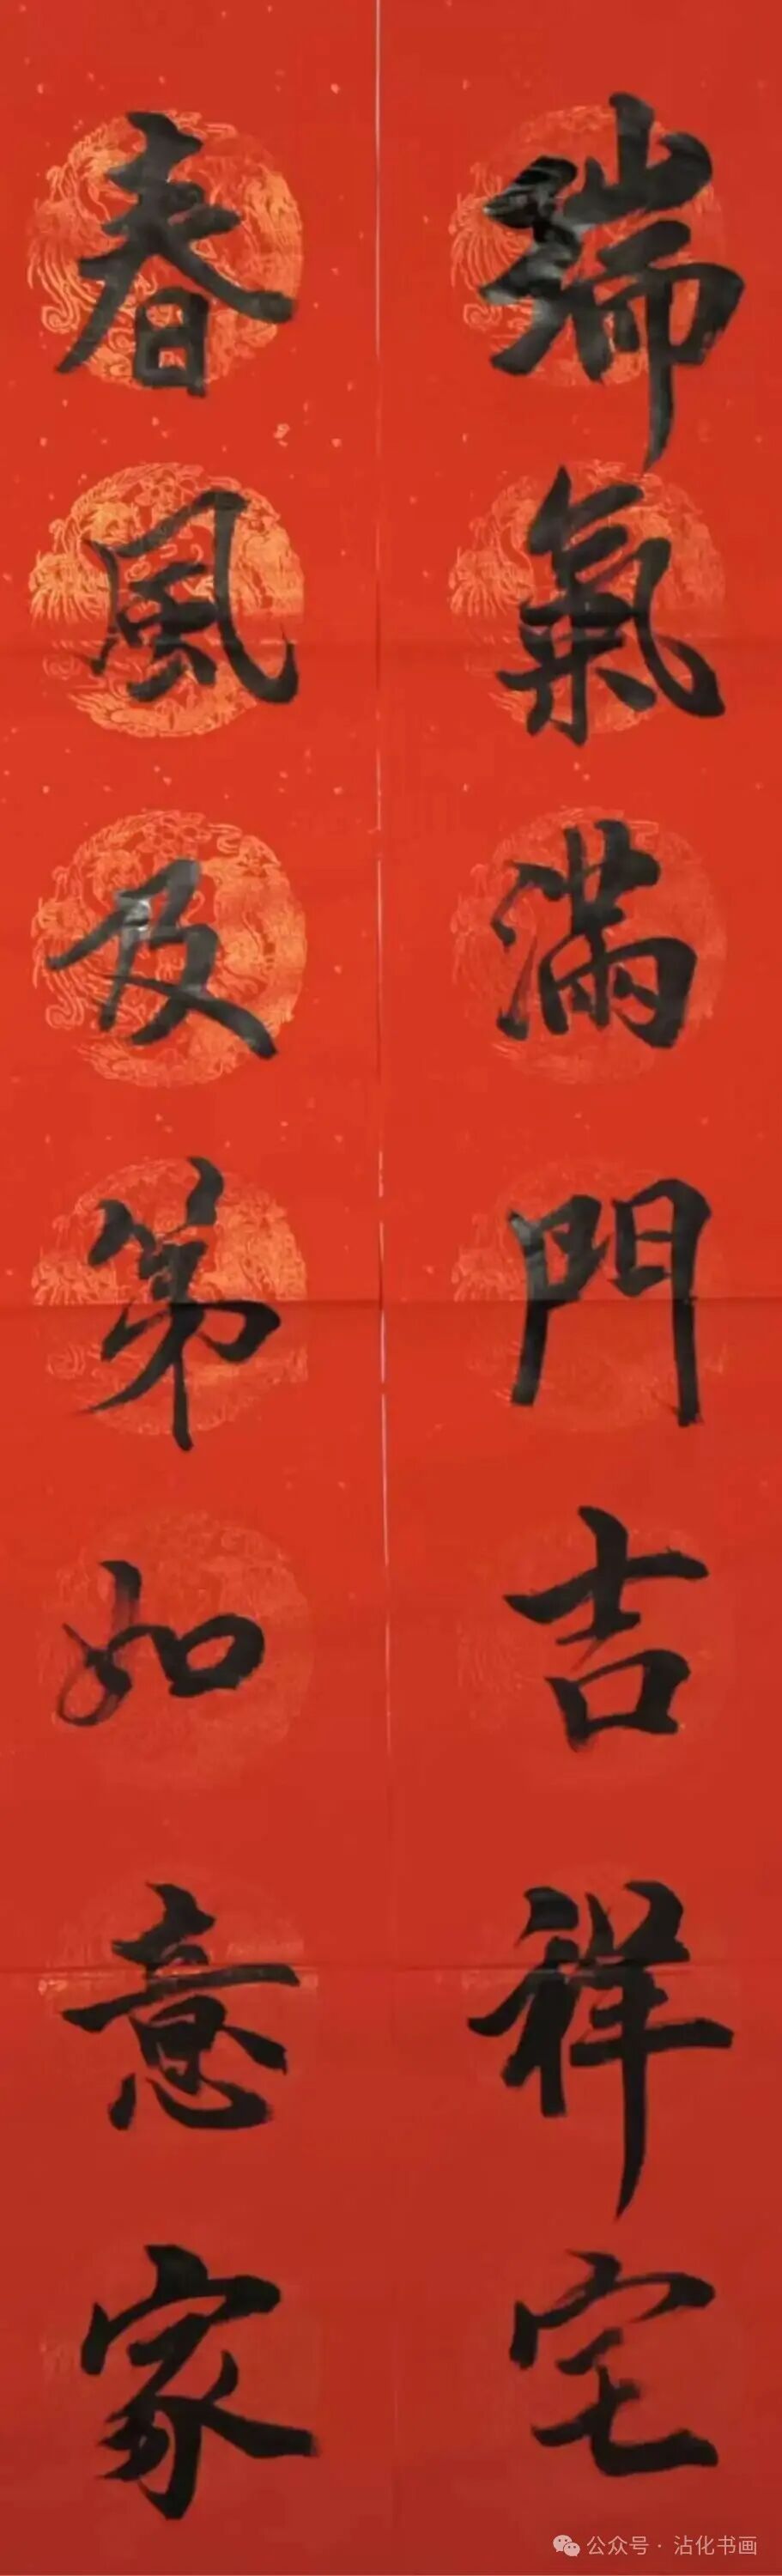 瑞氣滿門吉祥宅
春風及第如意家
公众号·沾化书画